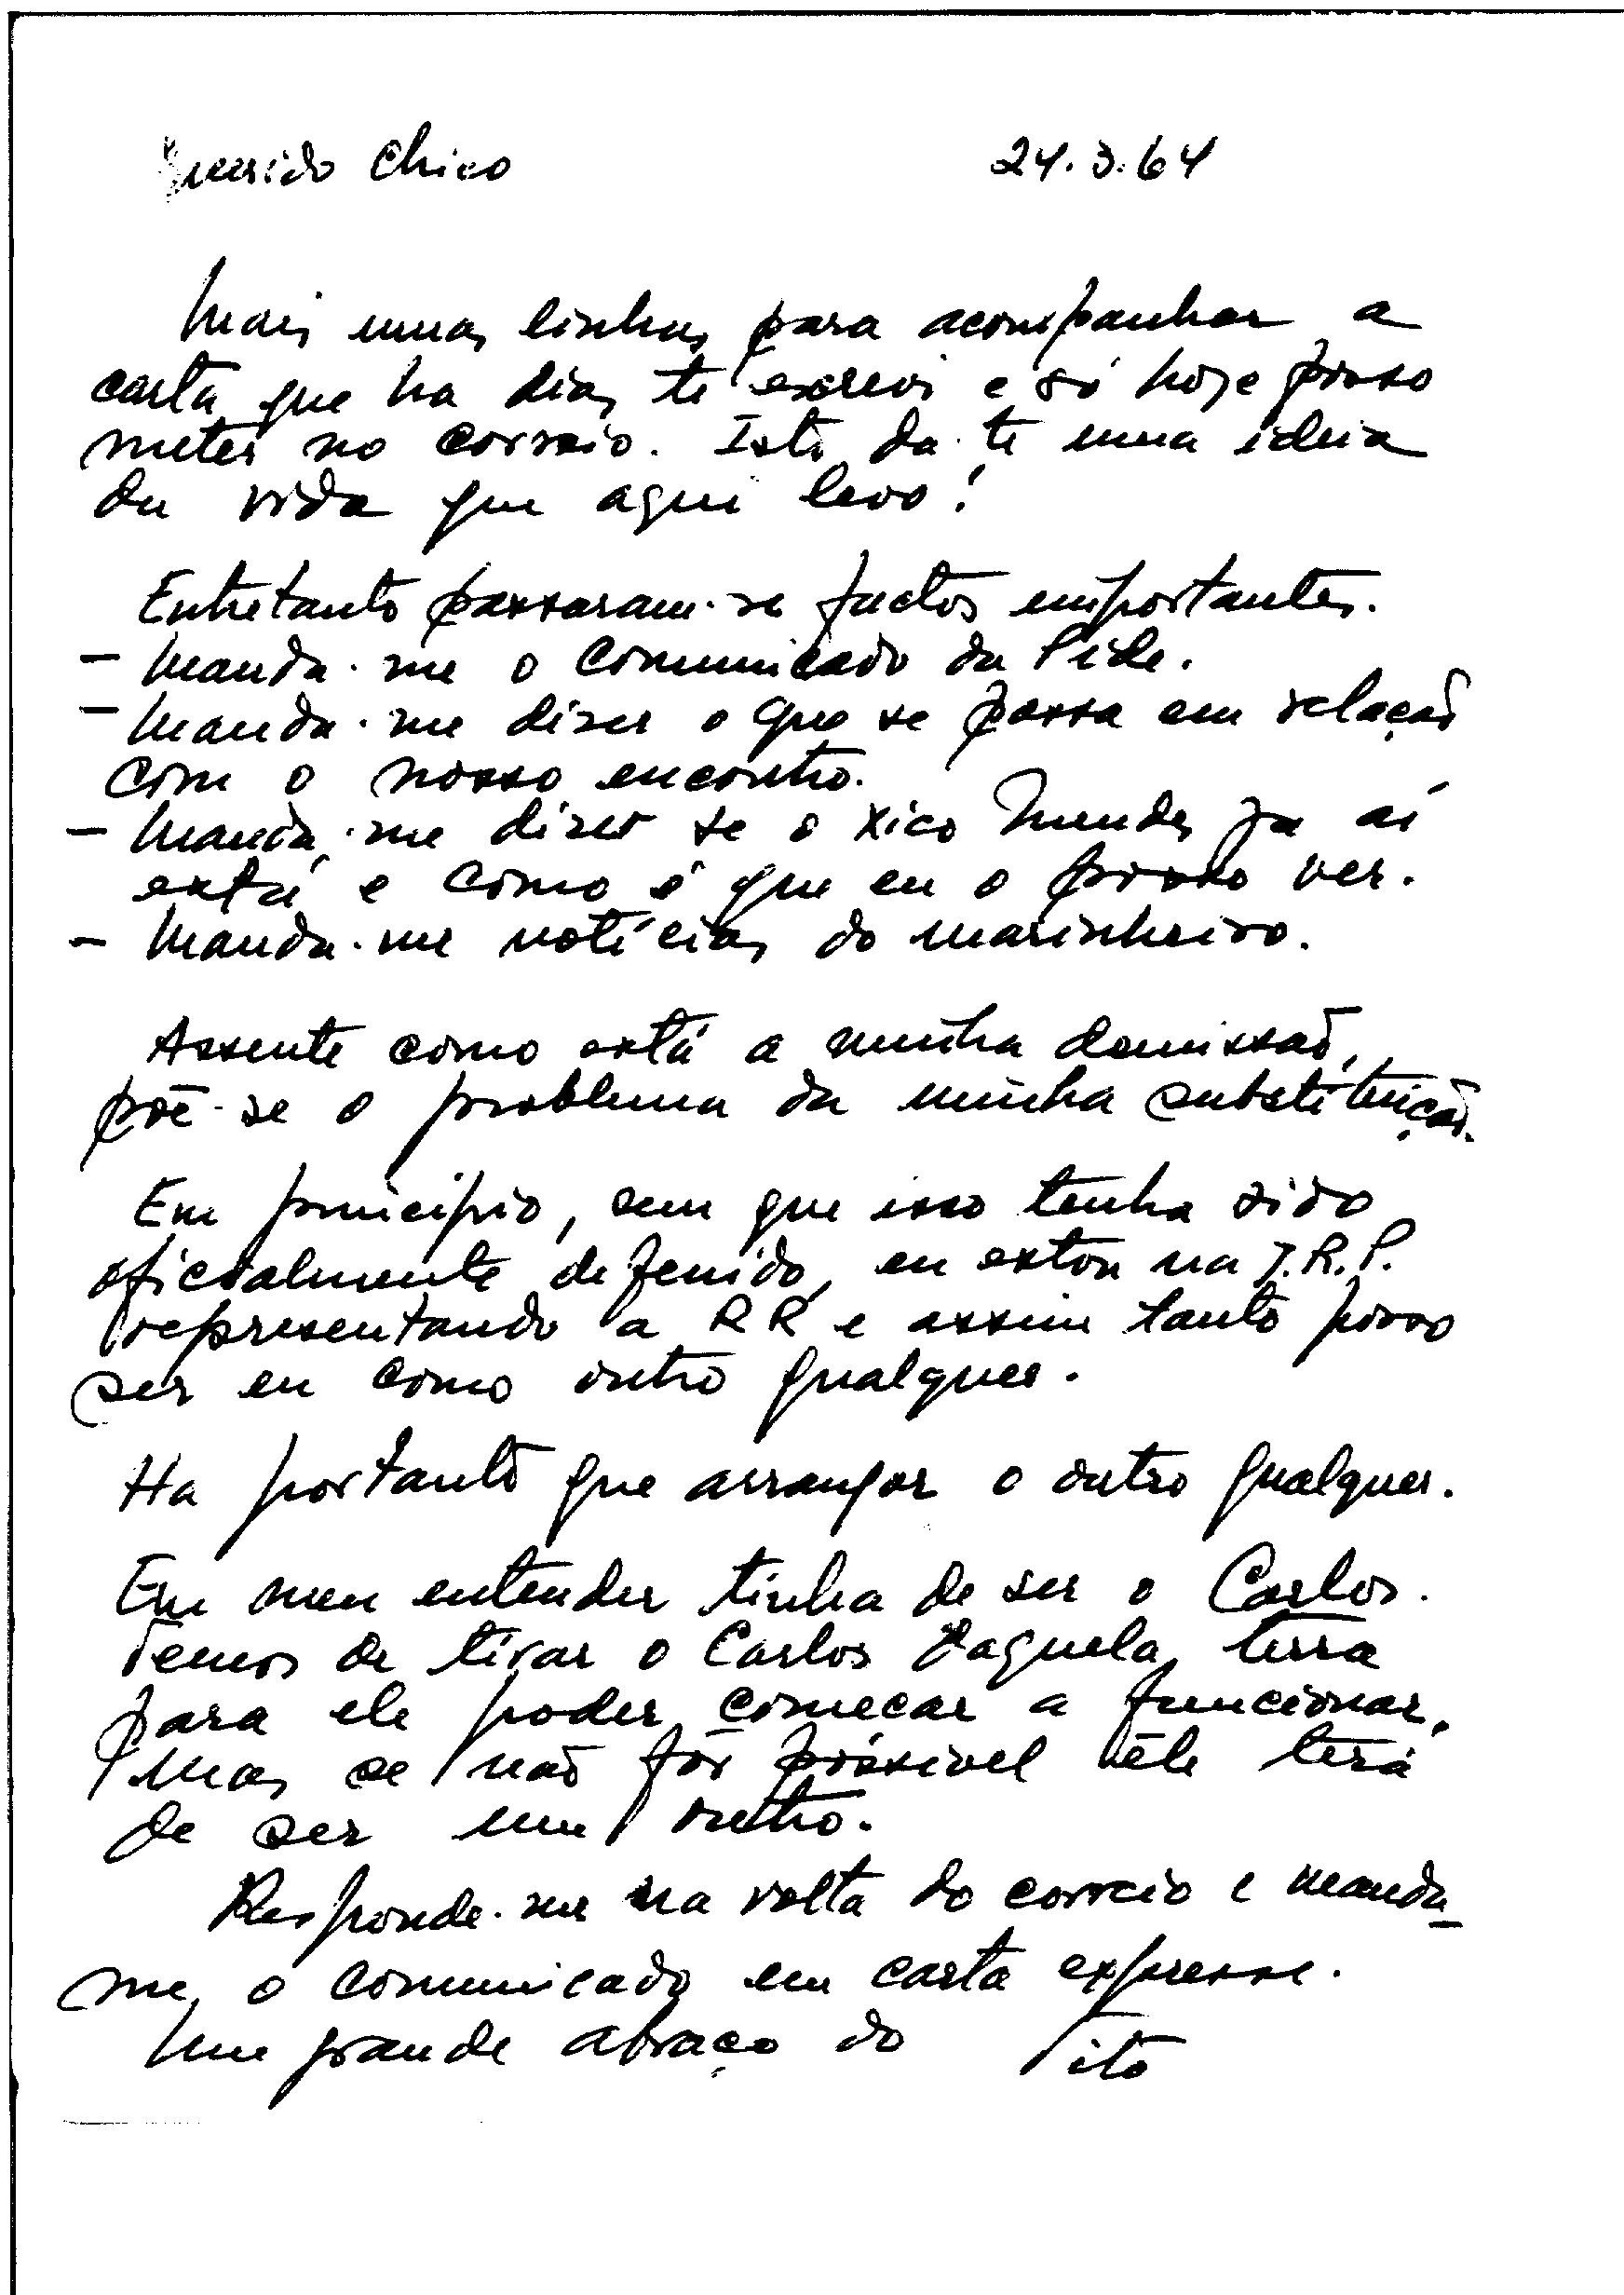 Querido Chico 24.3.64
Mais umas linhas para acompanhar a
carta que ha dias te escrevi e só hoje posso
meter no correio. Isto da-te uma ideia
da vida que aqui levo!
Entretanto passaram-se factos importantes.
- Manda-me o comunicado da Pide.
- Manda-me dizer o que se passa em relação
com o nosso encontro.
- Manda-me dizer se o Xico Mendes ja aí
está e como é que eu o posso ver.
- Manda-me notícias do marinheiro.
Assente como está a minha demissão,
põe-se o problema da minha substituição.
Em principio, sem que isso tenha sido
oficialmente defenido, eu estou na J.R.P.
representando a RR e assim tanto posso
ser eu como outro qualquer.
Ha portanto que arranjar o outro qualquer.
Em meu entender tinha de ser o Carlos.
Temos de tirar o Carlos daquela terra
para ele poder começar a funcionar,
Mas se não fôr possivel êle terá
de ser um outro.
Responde-me na volta do correio e manda-
me o comunicado em carta expresse.
Um grande abraço do Tito